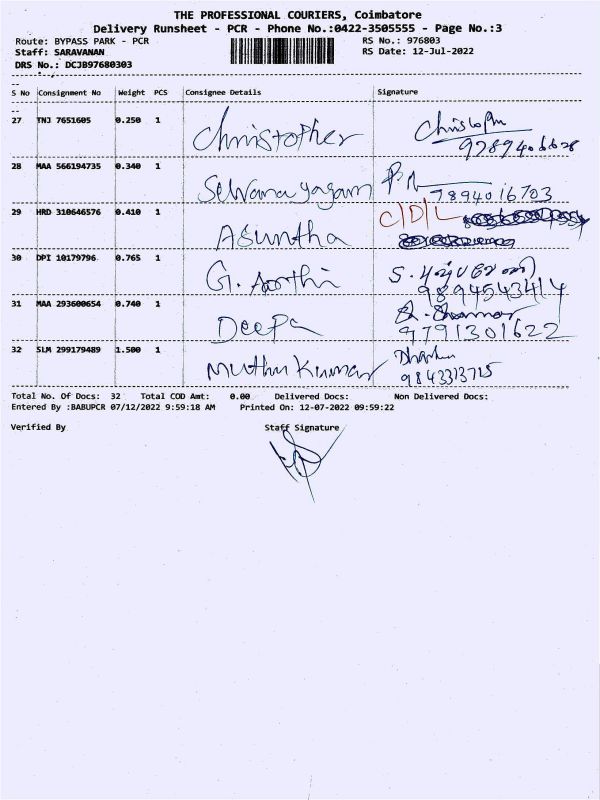 THE PROFESSIONAL COURIERS, Coimbatore
Delivery Runsheet - PCR - Phone No.:0422-3505555 - Page No.:3
Route: BYPASS PARK - PCR RS No.: 976803
Staff: SARAVANAN RS Date: 12-Jul-2022
DRS No.: DCJB97680303
S No Consignment No Weight PCS Consignee Details Signature
27 TNJ 7651605 0.250 1 Christopher Christopher
9789406628
28 MAA 566194735 0.340 1 Selvanayagam
7894016703
29 HRD 310646576 0.410 1 Asuntha C/D/L
30 DPI 10179796 0.765 1 G. Aarthi
9894543414
31 MAA 293600654 0.740 1 Deepa
9791301622
32 SLM 299179489 1.500 1 Muthu Kumar
9843313715
Total No. Of Docs: 32 Total COD Amt: 0.00 Delivered Docs: Non Delivered Docs:
Entered By :BABUPCR 07/12/2022 9:59:18 AM Printed On: 12-07-2022 09:59:22
Verified By Staff Signature